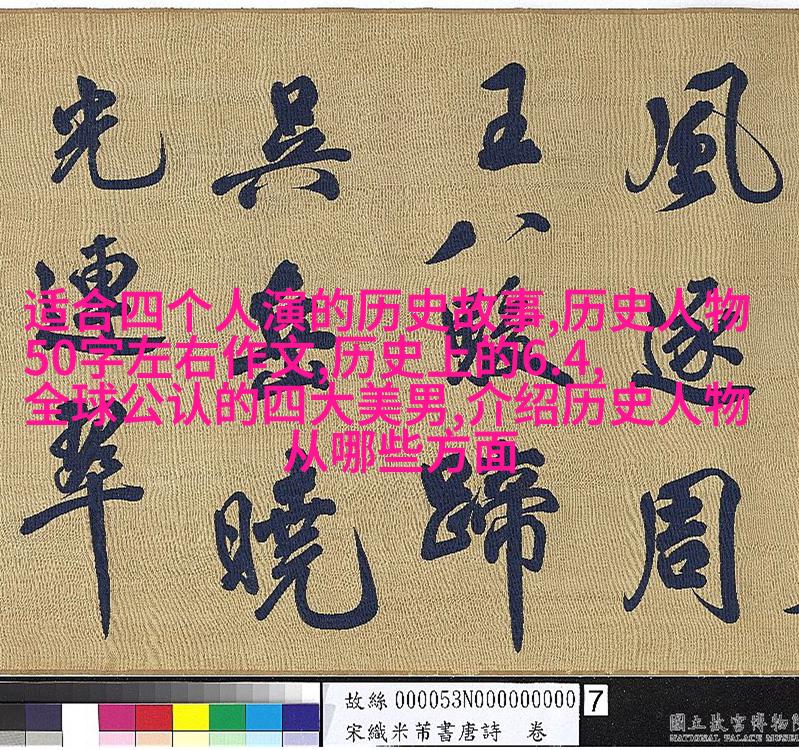 風逐周
王八駿蹄
吳岳曉
光連翠
适合四个人演的历史故事,历史人物
50字左右作文,历史上的6.4,
全球公认的四大美男,介绍历史人物
从哪些方面
故絲 000053N000000000 7
宋織米芾書唐詩 卷
國立故宮博物院
NATIONAL PALACE MUSEU